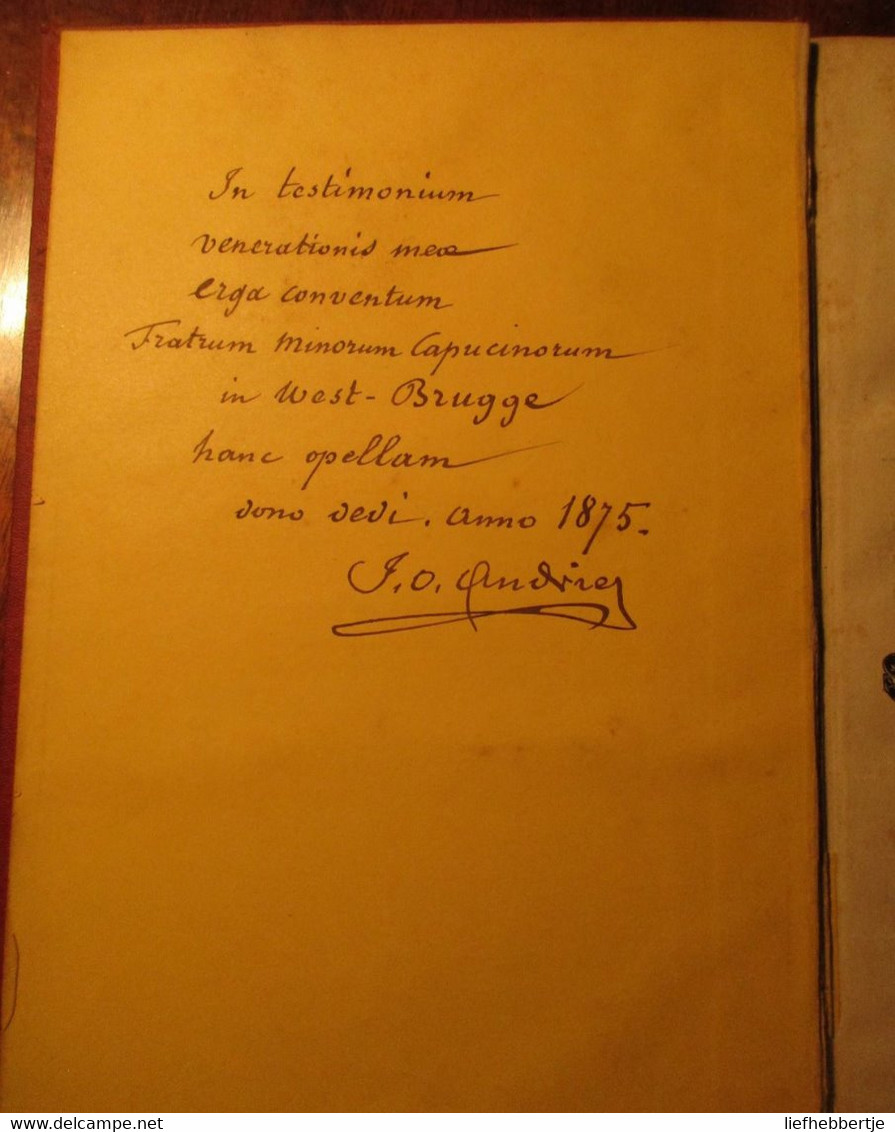 In testimonium
venerationis meæ
erga conventum
Fratrum Minorum Capucinorum
in West-Brugge
hanc opellam
dono dedi. Anno 1875.
J. O. Andries
delcampe.net
liefhebbertje